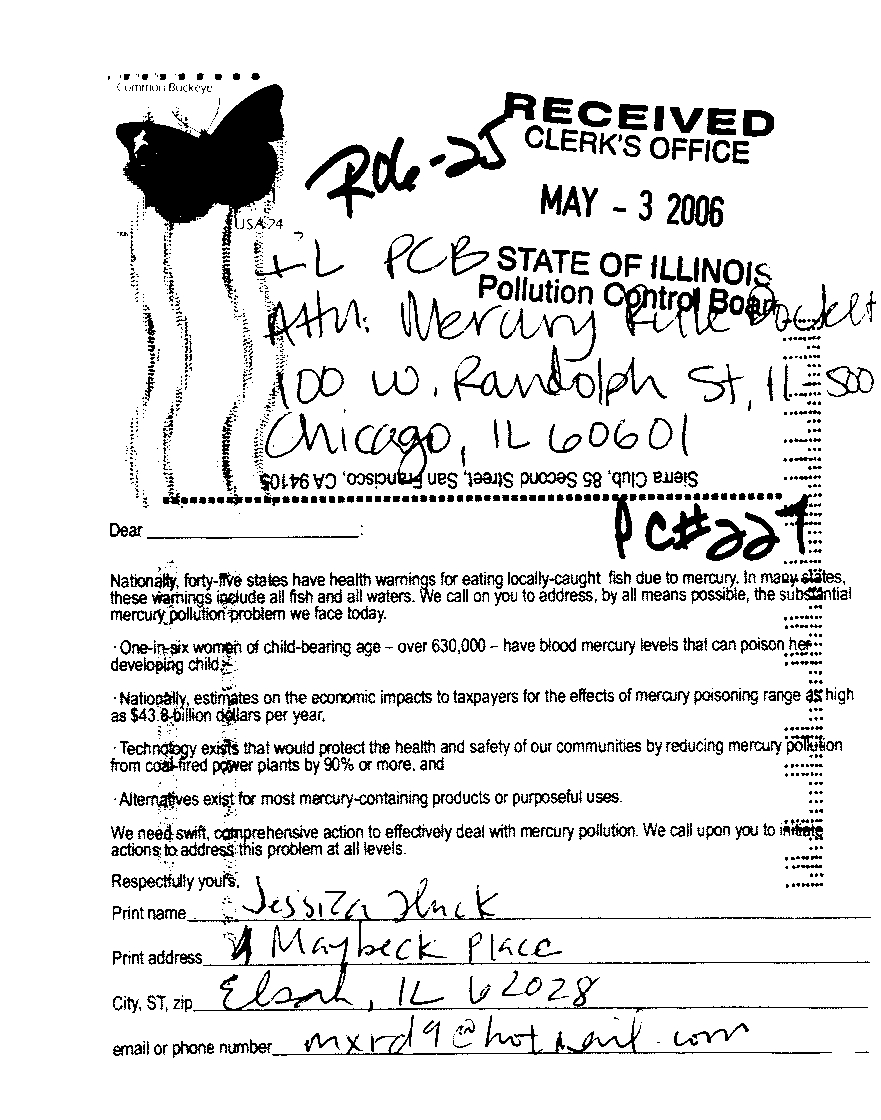 Common Buckeye
USA 24
RECEIVED
CLERK'S OFFICE
MAY - 3 2006
STATE OF ILLINOIS
Pollution Control Board
R06-25
IL PCB
Attn: Mercury Rule Docket
100 W. Randolph St, 11-500
Chicago, IL 60601
Sierra Club, 85 Second Street, San Francisco, CA 94105
PC#227
Dear :
Nationally, forty-five states have health warnings for eating locally-caught fish due to mercury. In many states,
these warnings include all fish and all waters. We call on you to address, by all means possible, the substantial
mercury pollution problem we face today.
· One-in-six women of child-bearing age – over 630,000 – have blood mercury levels that can poison her
developing child,
· Nationally, estimates on the economic impacts to taxpayers for the effects of mercury poisoning range as high
as $43.8-billion dollars per year,
· Technology exists that would protect the health and safety of our communities by reducing mercury pollution
from coal-fired power plants by 90% or more, and
· Alternatives exist for most mercury-containing products or purposeful uses.
We need swift, comprehensive action to effectively deal with mercury pollution. We call upon you to initiate
actions to address this problem at all levels.
Respectfully yours,
Print name Jessica
Print address Maybeck Place
City, ST, zip Elsah, IL 62028
email or phone number mxrd9@hotmail.com